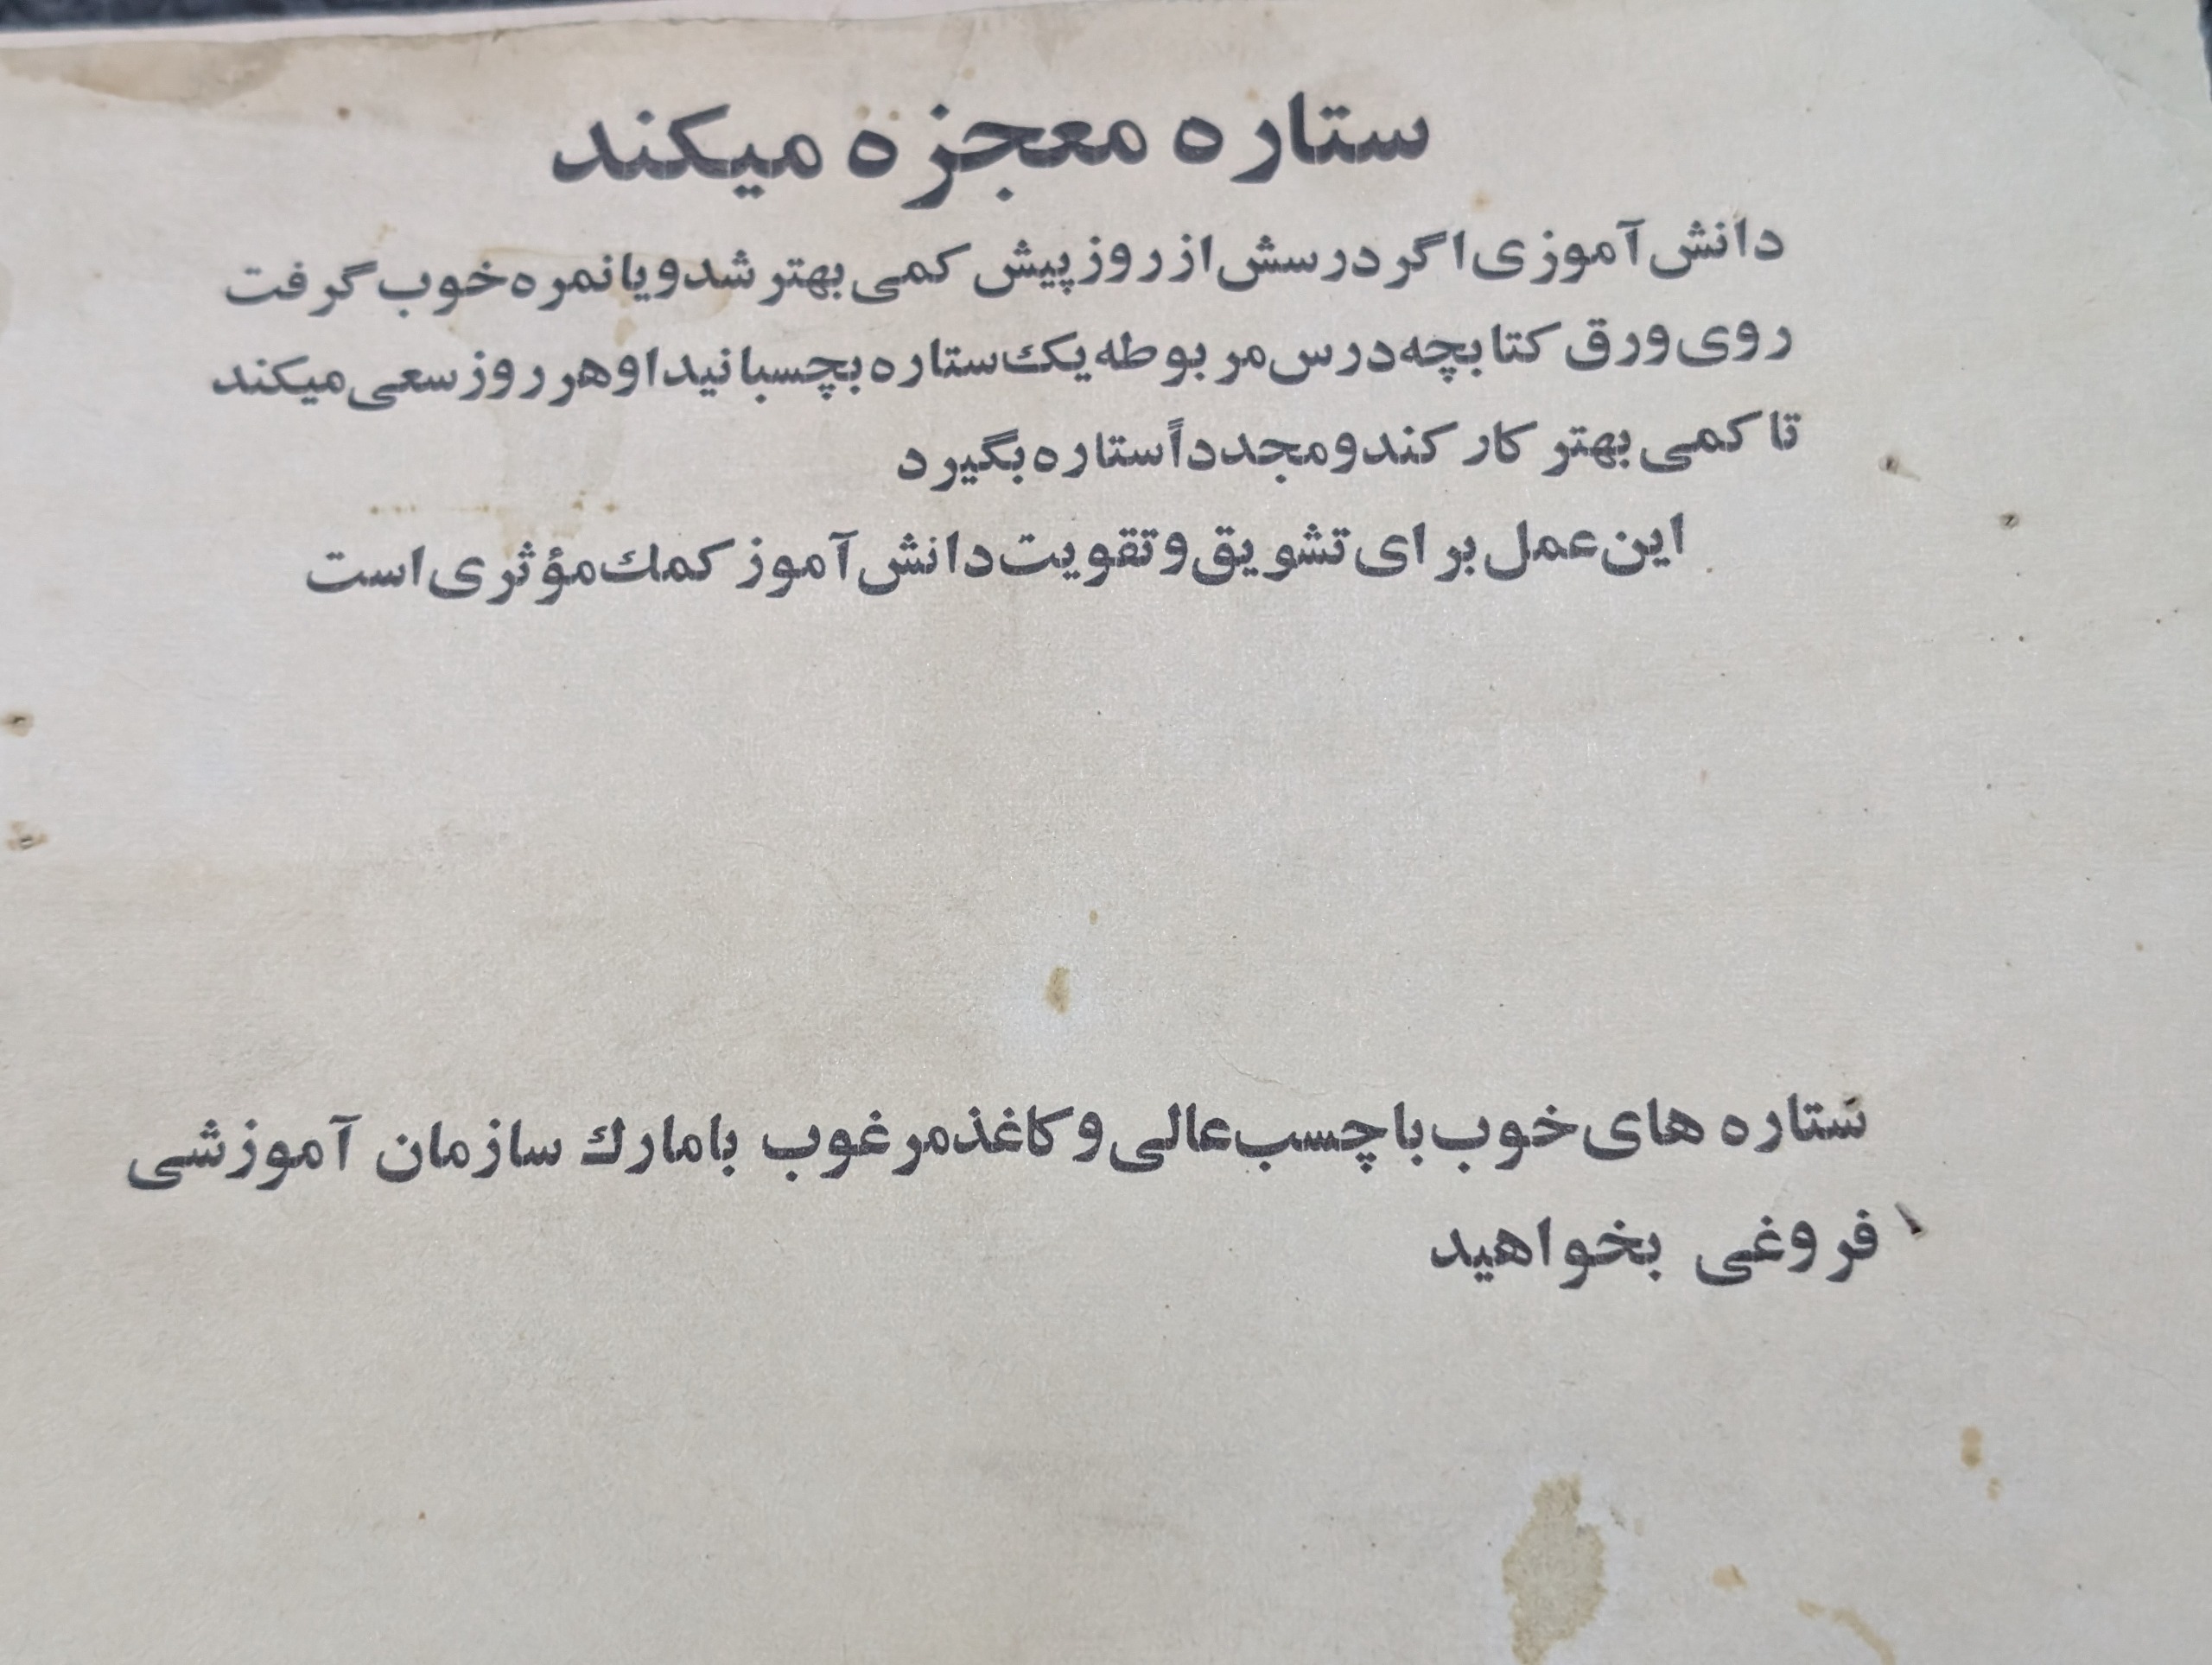 ستاره معجزه میکند
دانش آموزی اگر درسش از روز پیش کمی بهتر شد و یا نمره خوب گرفت
روی ورق کتابچه درس مربوطه یك ستاره بچسبانید او هر روز سعی میکند
تا کمی بهتر کار کند و مجدداً ستاره بگیرد
این عمل برای تشویق و تقویت دانش آموز کمك مؤثری است
ستاره های خوب با چسب عالی و کاغذ مرغوب با مارك سازمان آموزشی
فروغی بخواهید